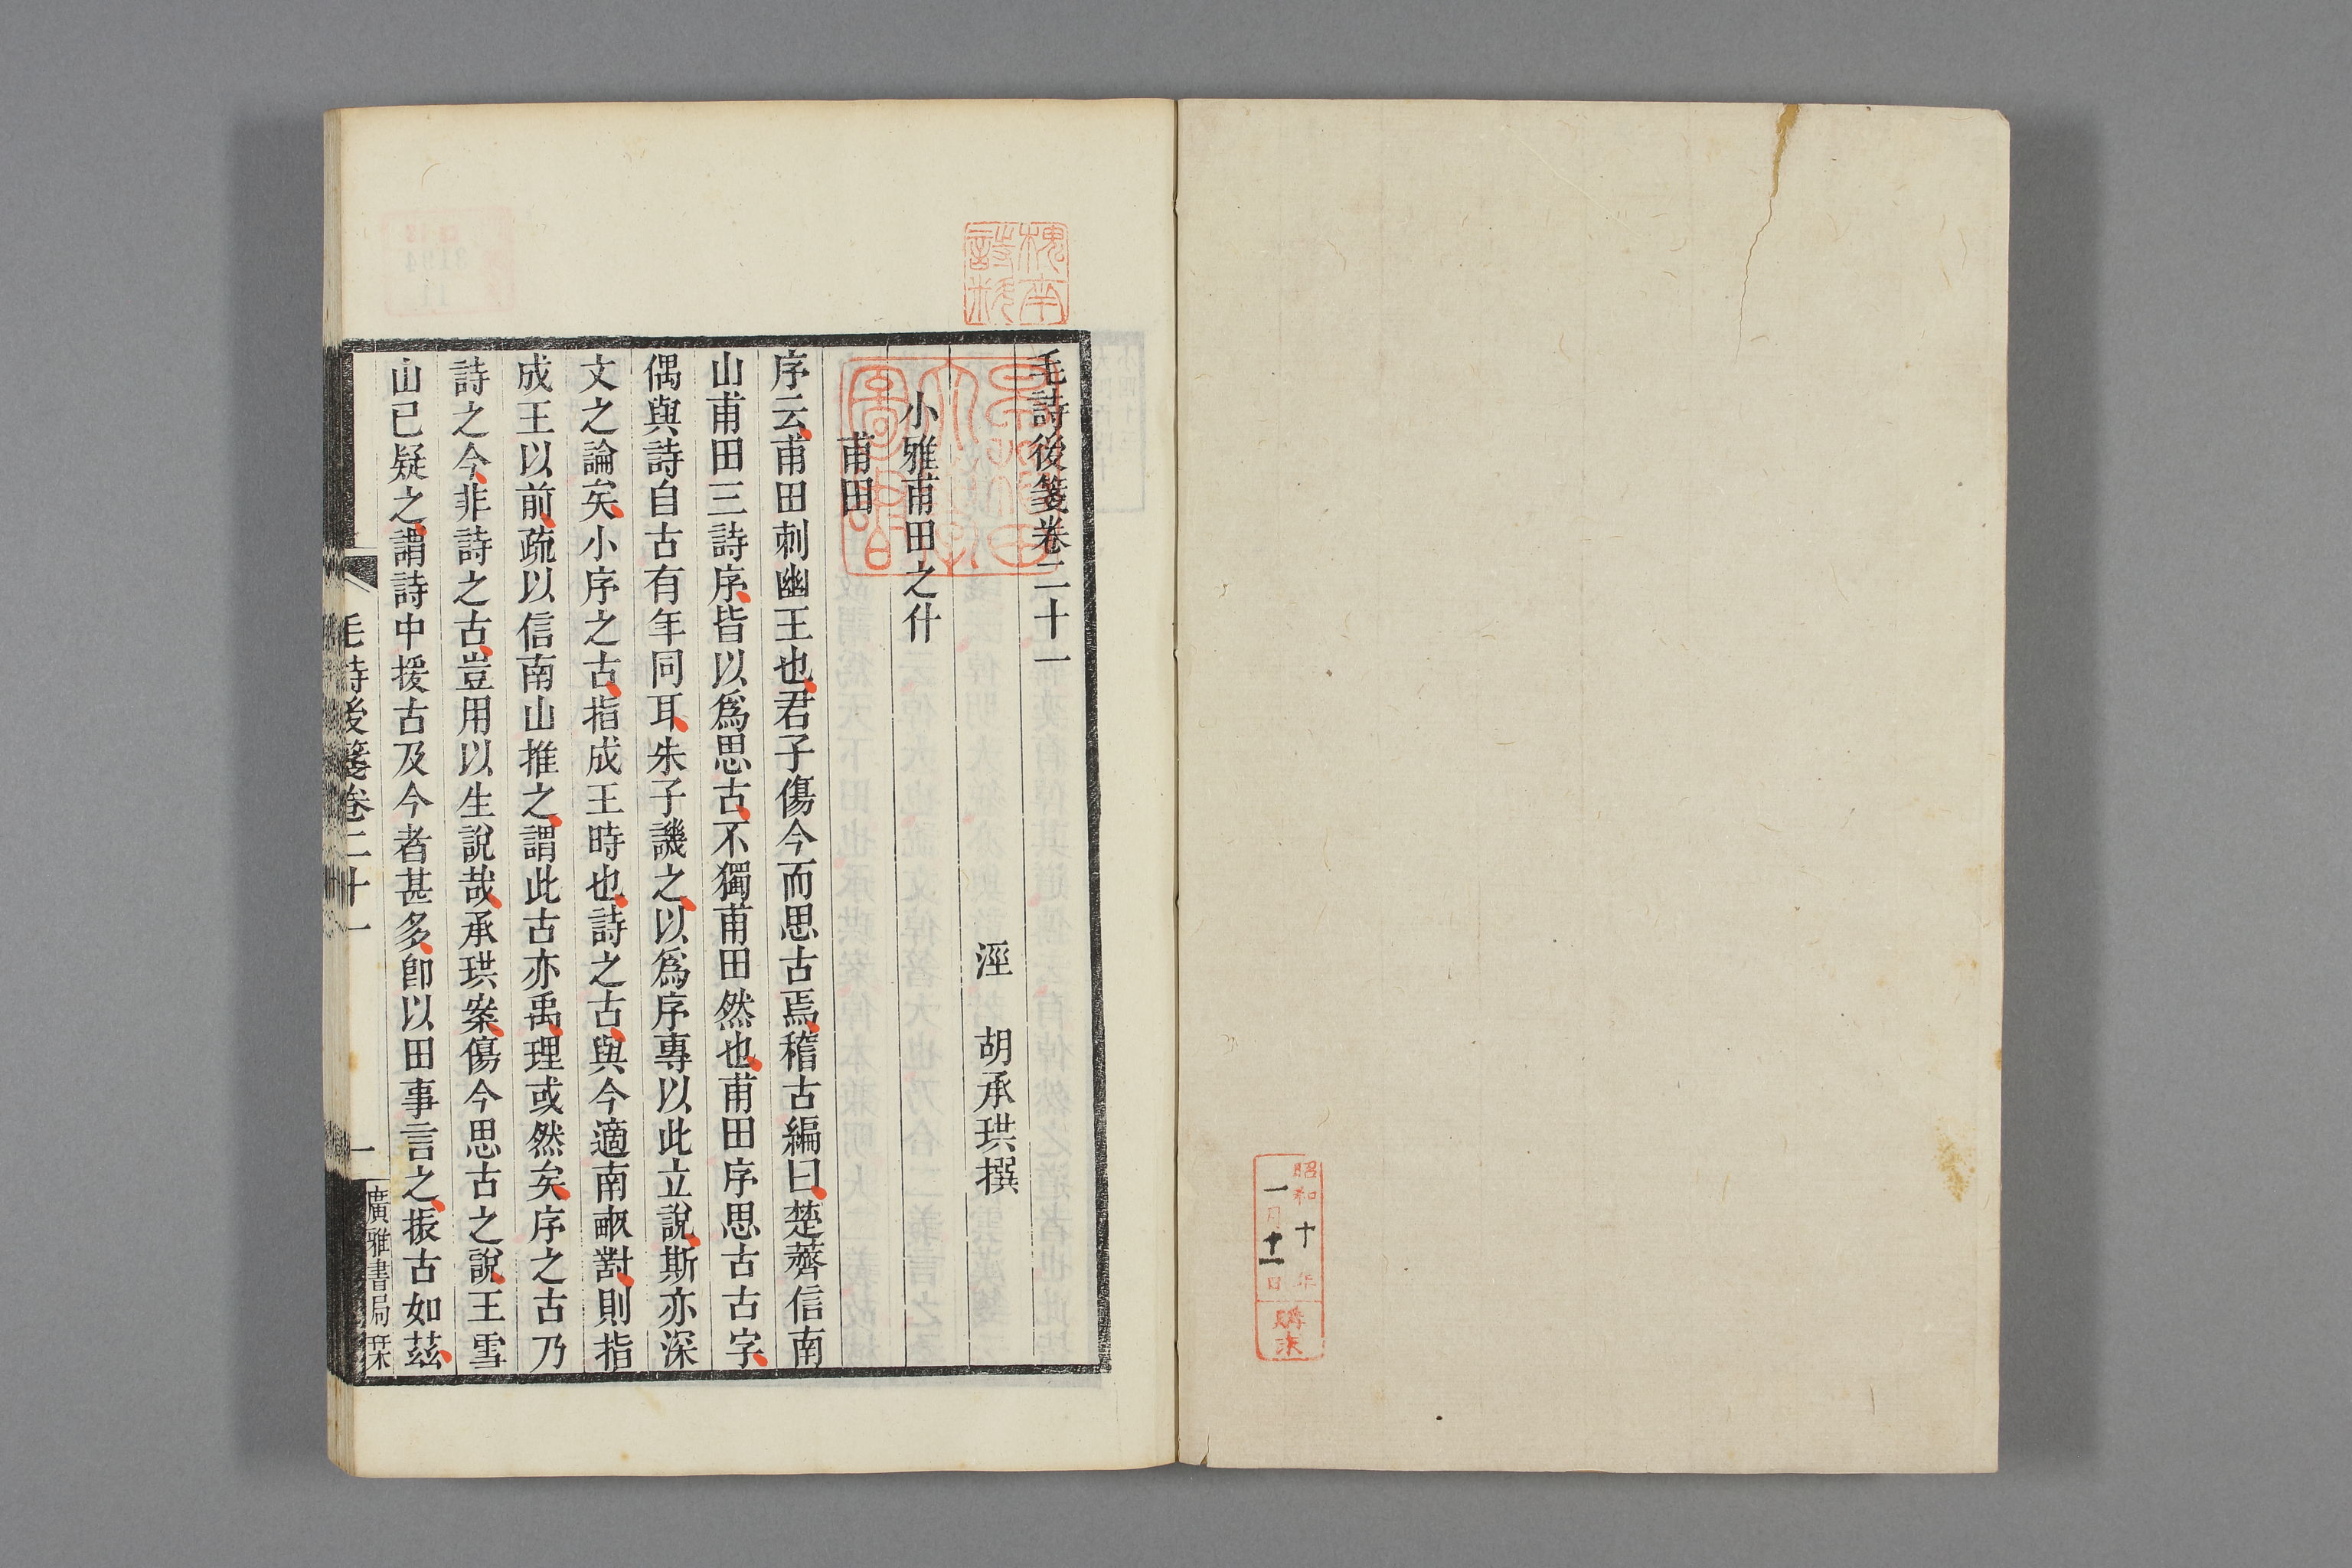 昭和十年
一月十一日
購求
毛詩後箋卷二十一
涇 胡承珙撰
小雅甫田之什
甫田
序云甫田刺幽王也君子傷今而思古焉稽古編曰楚薺信南
山甫田三詩序皆以爲思古不獨甫田然也甫田序思古古字
偶與詩自古有年同耳朱子譏之以爲序專以此立說斯亦深
文之論矣小序之古指成王時也詩之古與今適南畝對則指
成王以前疏以信南山推之謂此古亦禹理或然矣序之古乃
詩之今非詩之古豈用以生說哉承珙案傷今思古之說王雪
山已疑之謂詩中援古及今者甚多卽以田事言之振古如茲
毛詩後箋卷二十一
一
廣雅書局栞
槐南詩料